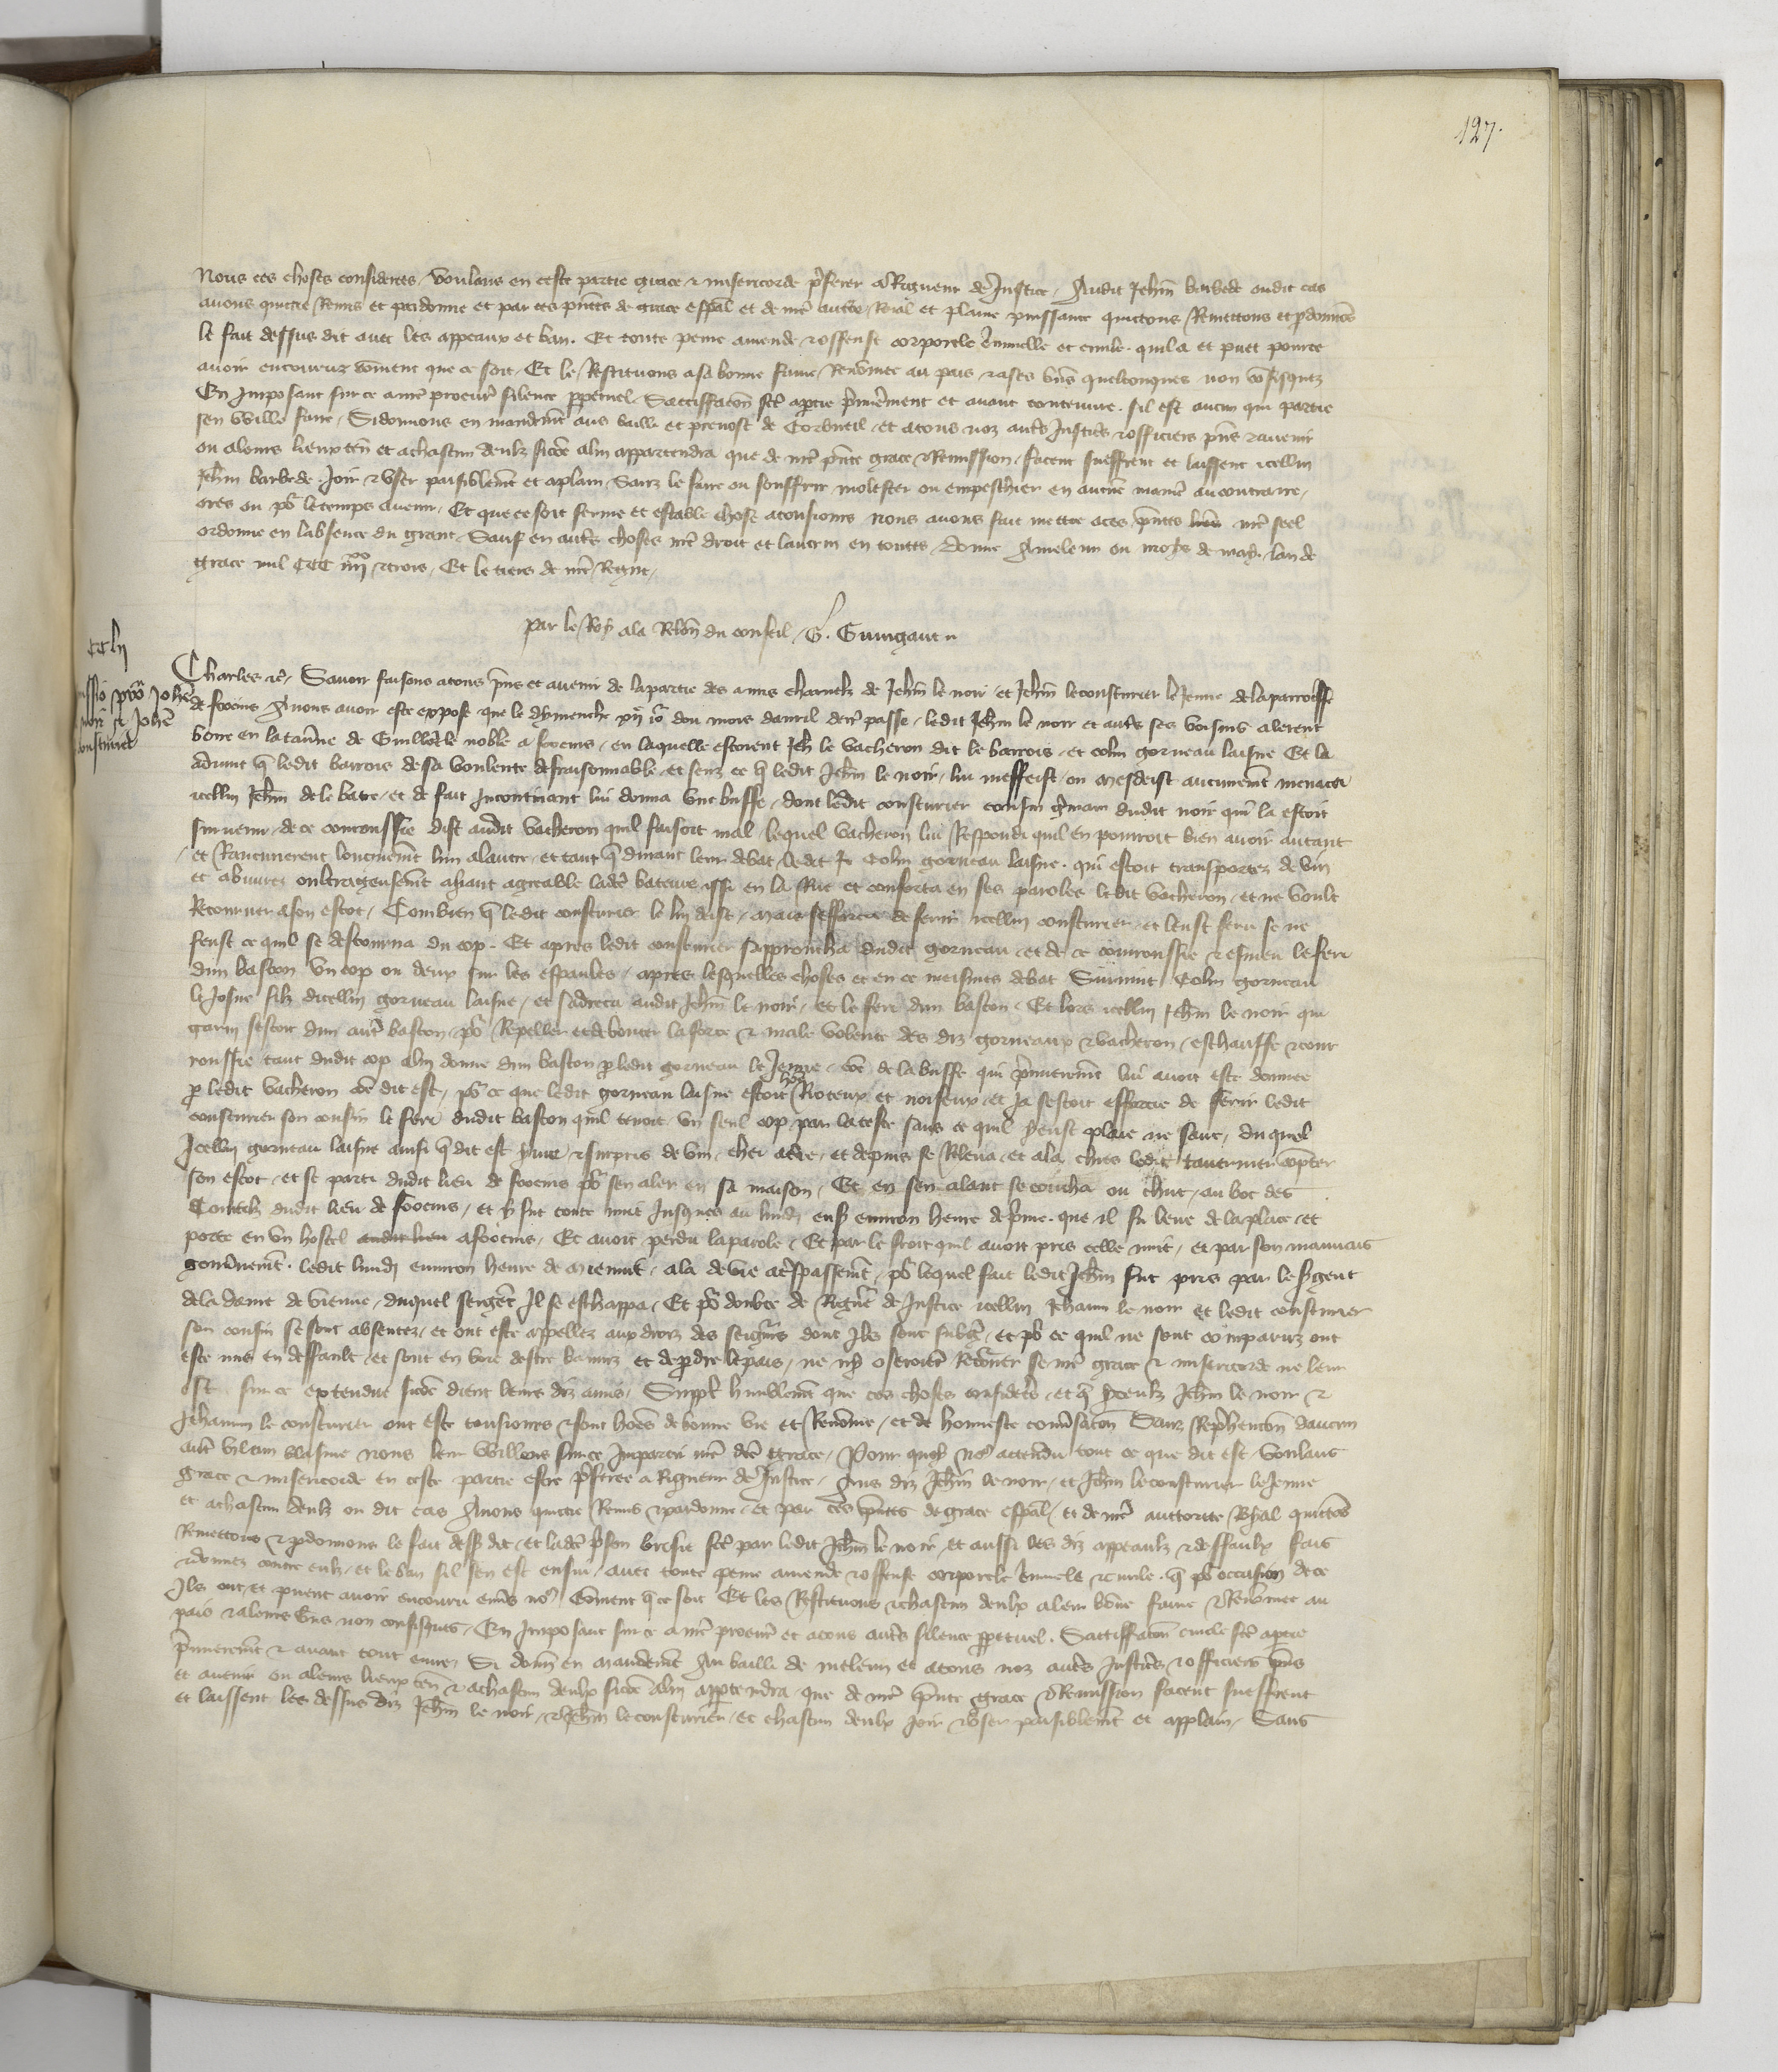 127.
Nous ces choses considerees, voulans en ceste partie grace et misericorde pferer a Rigueur de Justice, Audit Jehan barbede oudit cas
avons quictie Remis et pardonne et par ces pntes de grace espal et de nre auctte Roial et plaine puissance quictons Remettons et pdonnons
le fait dessus dit avec les appeaux et ban. Et toute peine amende et offense corporele criminelle et civile. quil a et puet pource
avoir encouruz coment que ce soit, Et le Restituons a sa bonne fame Renomee au pais et a ses biens quelconques non confisquez
En Imposant sur ce a nre procur silence ppetuel. Sattiffacon fcte a ptie premierement et avant toute euvre. sil est aucun qui partie
sen vueille faire, Si donnons en mandemt aus bailli et prevost de Corbueil et a tous noz autres Justiciers et officiers pns et avenir
ou a leurs lieuxten et a chascun deulz sicoe a lui appartendra que de nre pnte grace et Remission, facent sueffrent et laissent icellui
Jehan barbede. Joir et user paisiblemt et a plain, Sanz le faire ou souffrir molester ou empeschier en aucune maniere au contraire,
ores ou po le temps avenir, Et que ce soit ferme et estable chose a tousiours nous avons fait mettre a ces pntes nre seel
ordonne en labsence du grant. Sauf en autres choses nre droit et lautrui en toutes, Donne A meleun ou mois de may. lan de
grace mil CCC iiiixx et trois, Et le tiers de nre Regne,
par le Roy a la Relon du conseil, G.
Charles etc, Savoir faisons a tous pns et avenir de la partie des amis charnelz de Jehan le noir et Jehan le cousturier le Jeune de la parroisse
de Avons avoir este expose que le dymenche jo dou mois davril derr passe, ledit Jehan le noir et autres ses voisins alerent
boire en la taverne de Guillot le noble a en laquelle estoient Jeh le vacheron dit le barrois, et Colin gorneau laisne Et la
advint q ledit barrois de sa voulente desraisonnable, et senz ce q ledit Jehan le noir, lui meffeist ou mesdeist aucunemt menaca
icellui Jehan de le batre, et de fait Incontinant lui donna une buffe, dont ledit cousturier cousin germain dudit noir qui la estoit
survenu, de ce courroussie dist audit vacheron quil faisoit mal, lequel vacheron lui Respondi quil en pourroit bien avoir autant
et Rancunerent longuemt lun a lautre, et tant q durant leur debat ledit Colin gorneau laisne. qui estoit transportez de vin
et abuvrez oultrageusemt aiant agreable ladte bateure issi en la Rue et conforta en ses paroles ledit vacheron, et ne voult
Retourner a son escot, Combien q ledit cousturier le lui deist, mais sefforca de ferir icellui cousturier, et leust feru se ne
feust ce quil se destourna du cop. Et apres ledit cousturier sapproucha dudit gorneau et de ce courroussie et esmeu le feri
dun baston un cop ou deux sur les espaules, apres lesquelles choses et en ce meismes debat Survint Colin gorneau
le Josne filz dicellui gorneau laisne, et sadreca audit Jehan le noir, et le feri dun baston. Et lors icellui Jehan le noir qui
garni sestoit dun autre baston, po Repeller et debouter la force et male volente des diz gorneaux et vacheron, eschauffe et cour
roussie tant dudit cop a lui donne dun baston p ledit gorneau le Jeune, coe de la buffe qui premieremt lui avoit este donnee
p ledit vacheron coe dit est, po ce que ledit gorneau laisne estoit hoe Rioteux et noiseux, et Ja sestoit efforcie de ferir ledit
cousturier son cousin le feri dudit baston quil tenoit un seul cop par la teste sans ce quil y eust plaie ne sanc, duquel
Icellui gorneau laisne ainsi q dit est yvre et surpris de vin, chei a terre, et depuis se Releva, et ala chies ledit tavernier compter
son escot, et se parti dudit lieu de po sen aler en sa maison, Et en sen alant se coucha ou chut, au bot des
Courtilz dudit lieu de et y fut toute nuit Jusques au lundi ensui environ heure de prime. que il fu leve de la place, et
porte en un hostel audit lieu a Et avoit perdu la parole, Et par le froit quil avoit pris celle nuit, et par son mauvais
gouvnemt. ledit lundi environ heure de mienuit, ala de vie a trespassemt, po lequel fait ledit Jehan fut pris par le sergent
de la dame de vienne, duquel sergent Il se eschappa, Et po doubte de Rigueur de Justice icellui Jehann le noir et ledit cousturier
son cousin se sont absentez, et ont este appellez aux droiz des seigneurs dont Ils sont subgiez, et po ce quil ne sont comparuz ont
este mis en deffault et sont en voie destre banniz et de pdre le pais, ne ny oseroient Retourner se nre grace et misericorde ne leur
est sur ce extendue sicoe dient leurs diz amis, Supplt humblemt que ces choses considerees, et q yceulx Jehan le noir et
Jehannin le cousturier ont este tousiours et sont hoes de bonne vie et Renomee, et de honneste conversacon Sanz Reprehencon daucun
autre vilain blasme nous leur vueillons sur ce Impartir nre dte grace, Pour quoy nous attendu tout ce que dit est, voulans
grace et misericorde en ceste partie estre pferee a Rigueur de Justice, Aus diz Jehan le noir, et Jehan le cousturier le Jeune
et a chascun deulz ou dit cas Avons quictie Remis et pardonne, et par ces pntes de grace espal, et de nre auctorite Royal quictons
Remettons et pdonnons le fait dessus dit, et ladte prison brisie fcte par ledit Jehan le noir, et aussi les diz appeaulx et deffaulx fais
et donnez contre eulz, et le ban sil sen est ensui, avec toute peine amende et offense corporele criminele et civile. q po occasion de ce
Ils ont et puent avoir encouru envers nous coment q ce soit Et les Restituons et chascun deulx a leur bone fame et Renomee au
pais et a leurs biens non confisquez, En Imposant sur ce a nre procur et a tous autres silence ppetuel. Sattiffacon civile fcte a ptie
premieremt et avant tout euvre, Si donn en mandemt Au bailli de meleun et a tous noz autres Justiciers et officiers pns
et avenir ou a leurs lieux ten et a chascun deulx sicoe a lui appartendra que de nre pnte grace et Remission facent sueffrent
et laissent les dessus diz Jehan le noir, et Jehan le cousturier, et chascun deulx Joir et user paisiblemt et applain, Sans